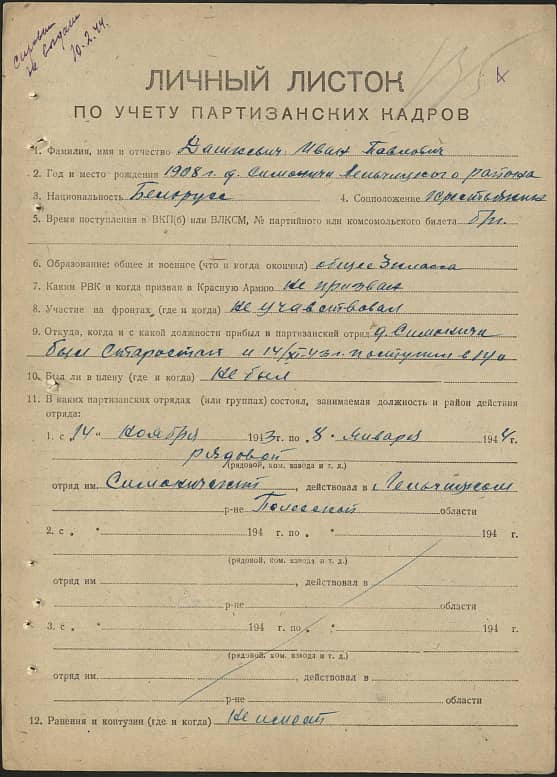 Справки
не выдали
10.2.44.
ЛИЧНЫЙ ЛИСТОК
ПО УЧЕТУ ПАРТИЗАНСКИХ КАДРОВ
1. Фамилия, имя и отчество Дашкевич Иван Павлович
2. Год и место рождения 1908 г. д. Симоничи Лельчицкого района
3. Национальность Белорусс 4. Соцположение Крестьянин
5. Время поступления в ВКП(б) или ВЛКСМ, № партийного или комсомольского билета бп.
6. Образование: общее и военное (что и когда окончил) общее 3 класса
7. Каким РВК и когда призван в Красную Армию не призван
8. Участие на фронтах (где и когда) не учавствовал
9. Откуда, когда и с какой должности прибыл в партизанский отряд д. Симоничи
был старостай и 14/XI-43 г. поступил в
10. Был ли в плену (где и когда) не был
11. В каких партизанских отрядах (или группах) состоял, занимаемая должность и район действия
отряда:
1. с „14" ноября 1943 г. по „8" января 1944 г.
рядовой
(рядовой, ком. взвода и т. д.)
отряд им. Симоничский, действовал в Лельчицком
р-не Полесской области
2. с „ " 194 г. по „ " 194 г.
(рядовой, ком. взвода и т. д.)
отряд им , действовал в
р-не области
3. с „ " 194 г. по „ " 194 г.
(рядовой, ком. взвода и т. д.)
отряд им. , действовал в
р-не области
12. Ранения и контузии (где и когда) не имеет